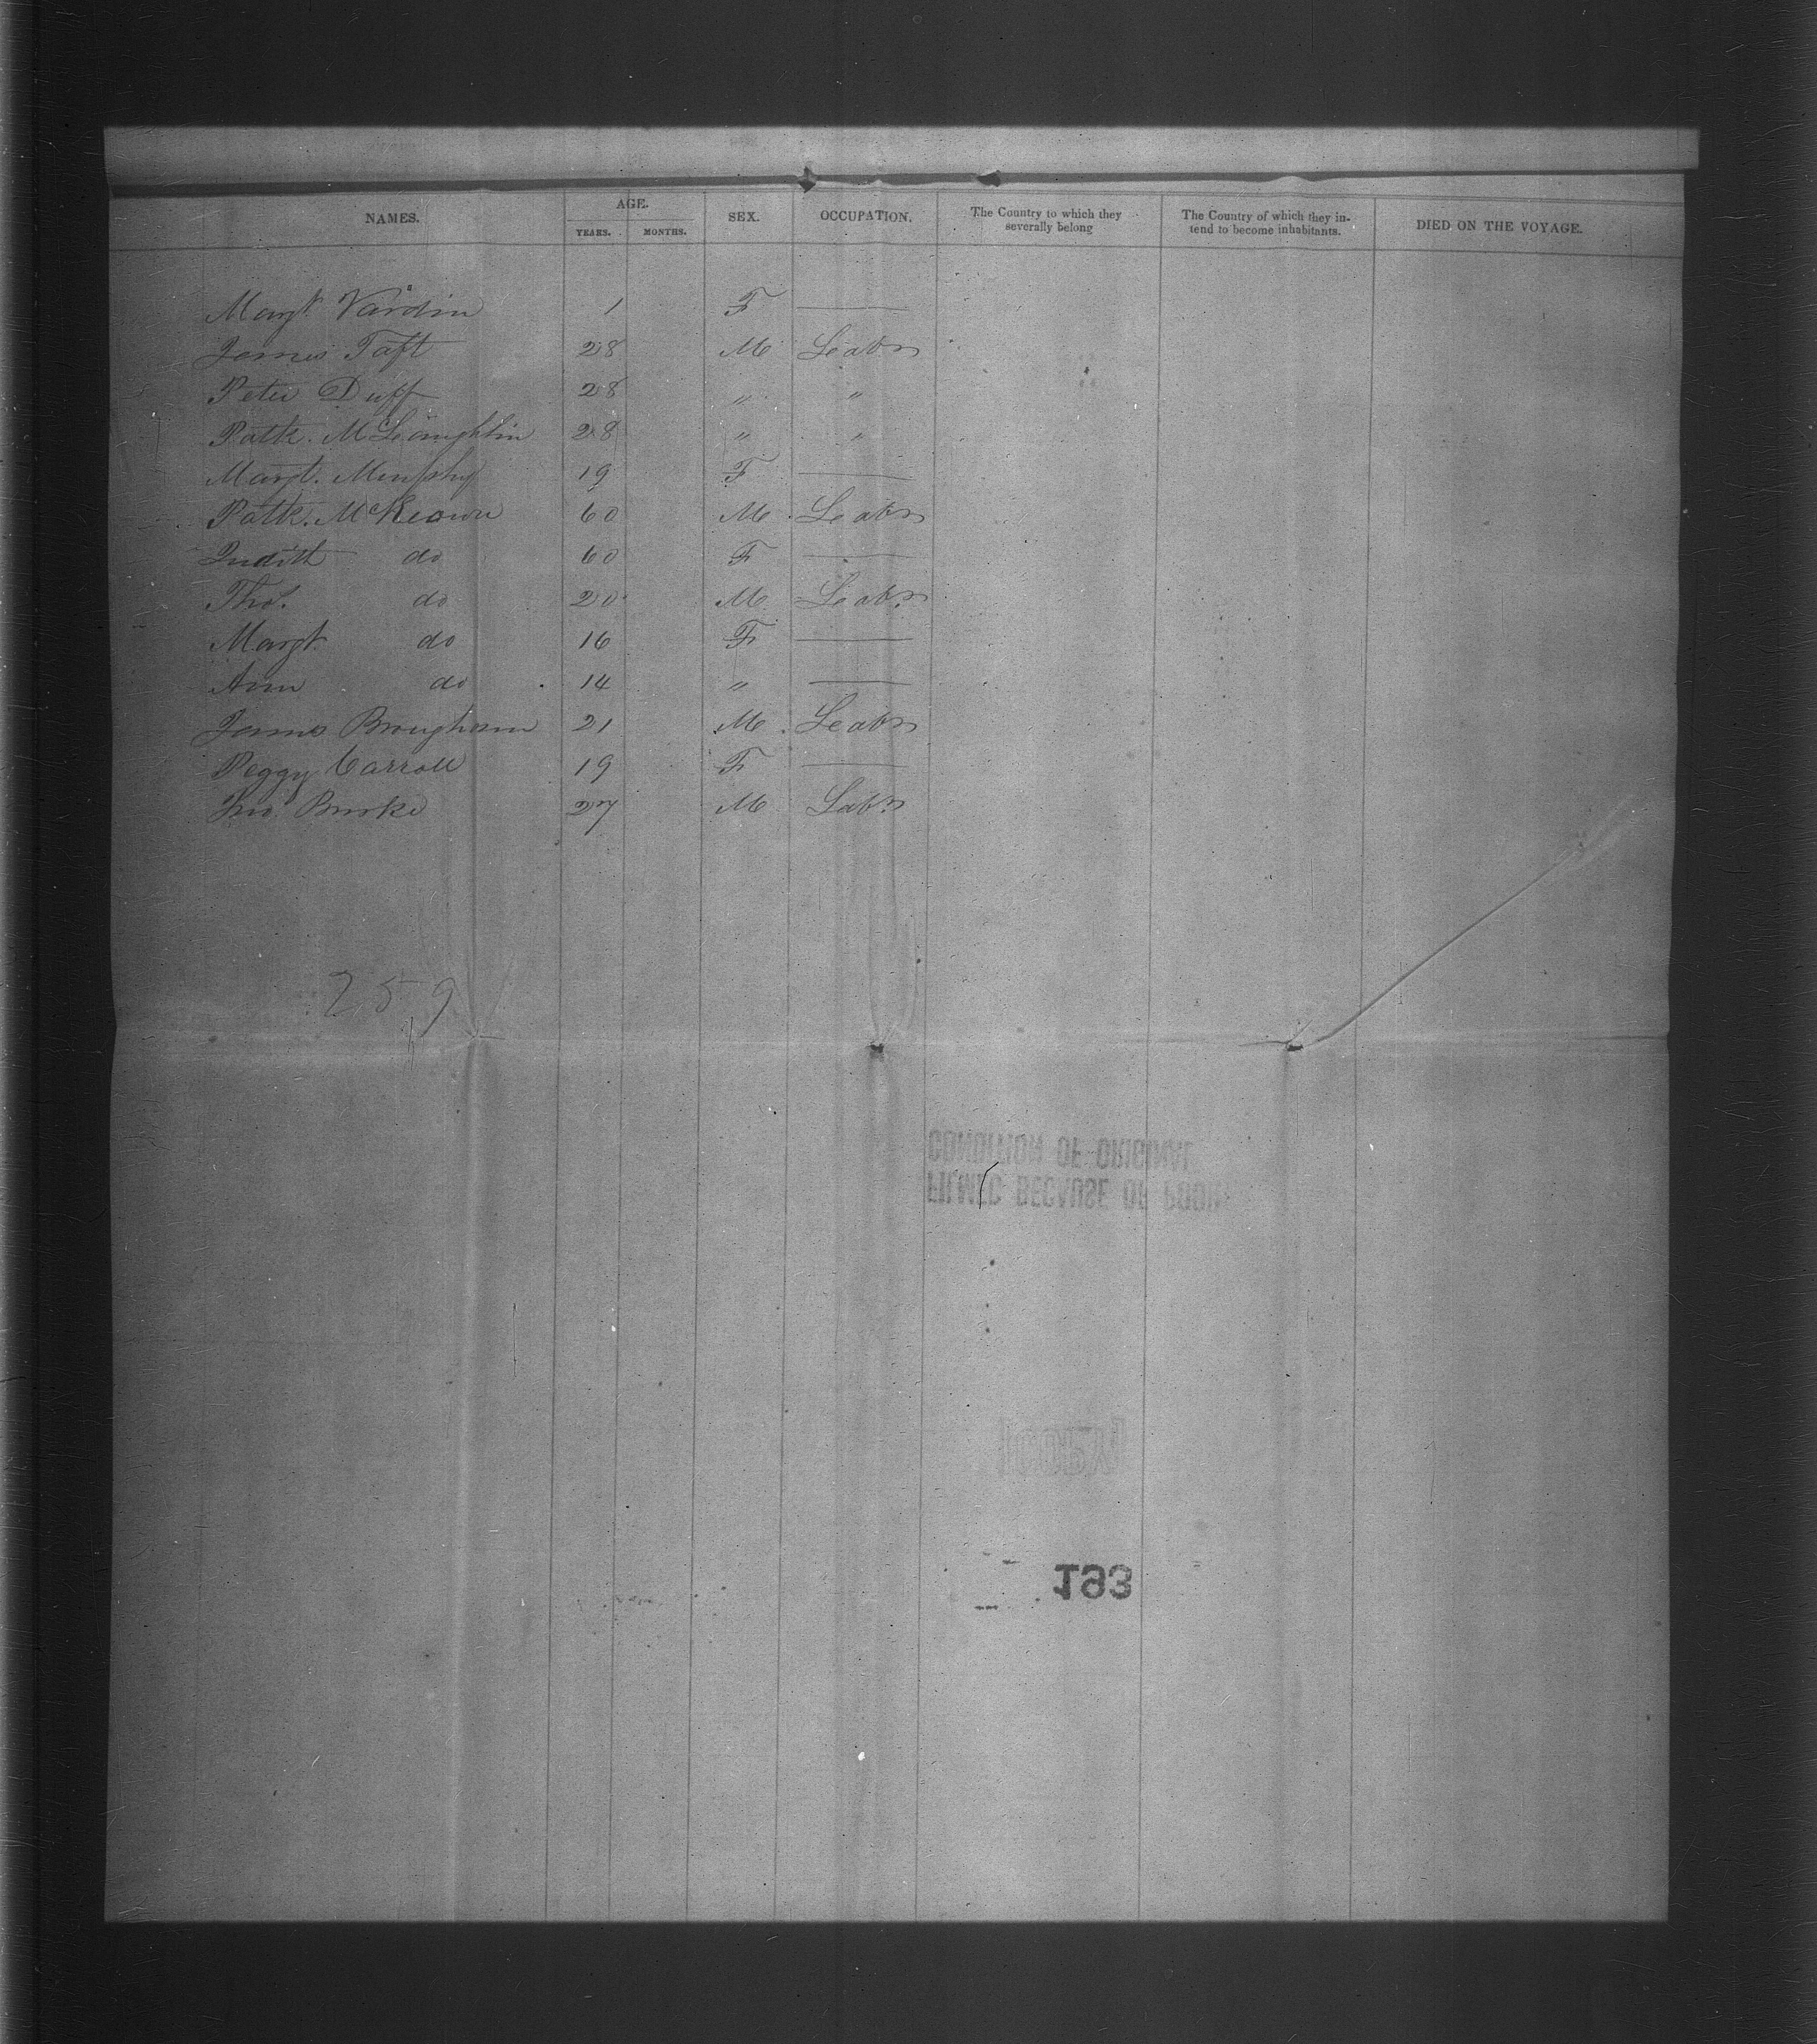 NAMES. AGE. SEX. OCCUPATION. The Country to which they severally belong The Country of which they in-tend to become inhabitants. DIED ON THE VOYAGE.
YEARS. MONTHS.
Margt. Vardin 1 F —
James Taft 28 M Leabr
Peter Duff 28 " "
Patk. McLoughlin 28 " "
Margt. Murphy 19 F —
Patk. McKeown 60 M Leabr
Judith do 60 F —
Thos. do 20 M Leabr
Margt. do 16 F —
Ann do 14 " —
James Brougham 21 M Leabr
Peggy Carroll 19 F —
Jno Burke 27 M Labr
259
CONDITION OF ORIGINAL
FILMED BECAUSE OF POOR
COPY
193